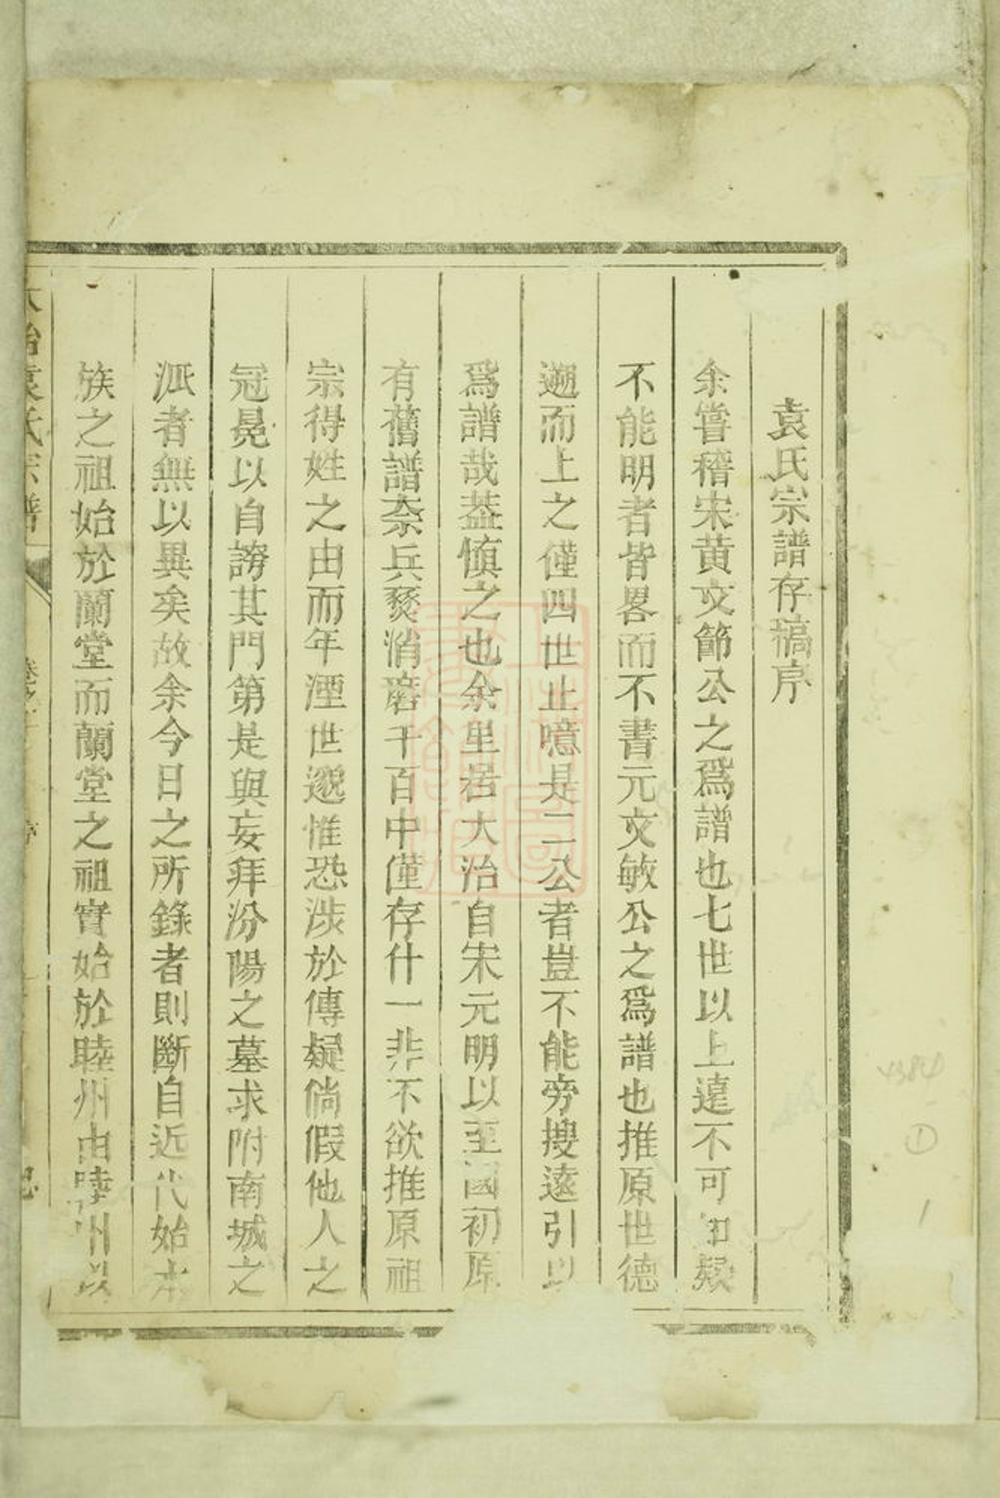 袁氏宗譜存稿序
余嘗稽宋黃文節公之爲譜也七世以上遠不可知疑
不能明者皆畧而不書元文敏公之爲譜也推原世德
遡而上之僅四世止噫是二公者豈不能旁搜遠引以
爲譜哉葢慎之也余里居大冶自宋元明以至國初原
有舊譜奈兵燹消磨千百中僅存什一非不欲推原祖
宗得姓之由而年湮世邈惟恐涉於傳疑倘假他人之
冠冕以自誇其門第是與妄拜汾陽之墓求附南城之
派者無以異矣故余今日之所錄者則斷自近代始本
族之祖始於蘭堂而蘭堂之祖實始於睦州由睦州以
大冶袁氏宗譜 卷之 序
4384
①
1